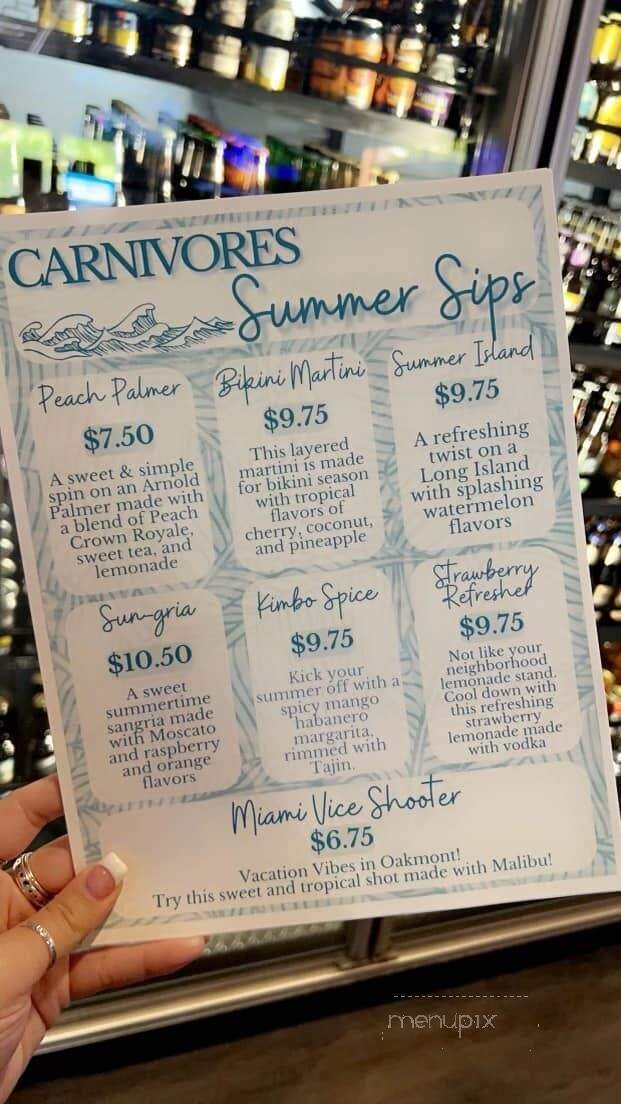 CARNIVORES
Summer Sips
Peach Palmer
$7.50
A sweet & simple
spin on an Arnold
Palmer made with
a blend of Peach
Crown Royale,
sweet tea, and
lemonade
Bikini Martini
$9.75
This layered
martini is made
for bikini season
with tropical
flavors of
cherry, coconut,
and pineapple
Summer Island
$9.75
A refreshing
twist on a
Long Island
with splashing
watermelon
flavors
Sun-gria
$10.50
A sweet
summertime
sangria made
with Moscato
and raspberry
and orange
flavors
Kimbo Spice
$9.75
Kick your
summer off with a
spicy mango
habanero
margarita,
rimmed with
Tajin.
Strawberry
Refresher
$9.75
Not like your
neighborhood
lemonade stand.
Cool down with
this refreshing
strawberry
lemonade made
with vodka
Miami Vice Shooter
$6.75
Vacation Vibes in Oakmont!
Try this sweet and tropical shot made with Malibu!
menupix